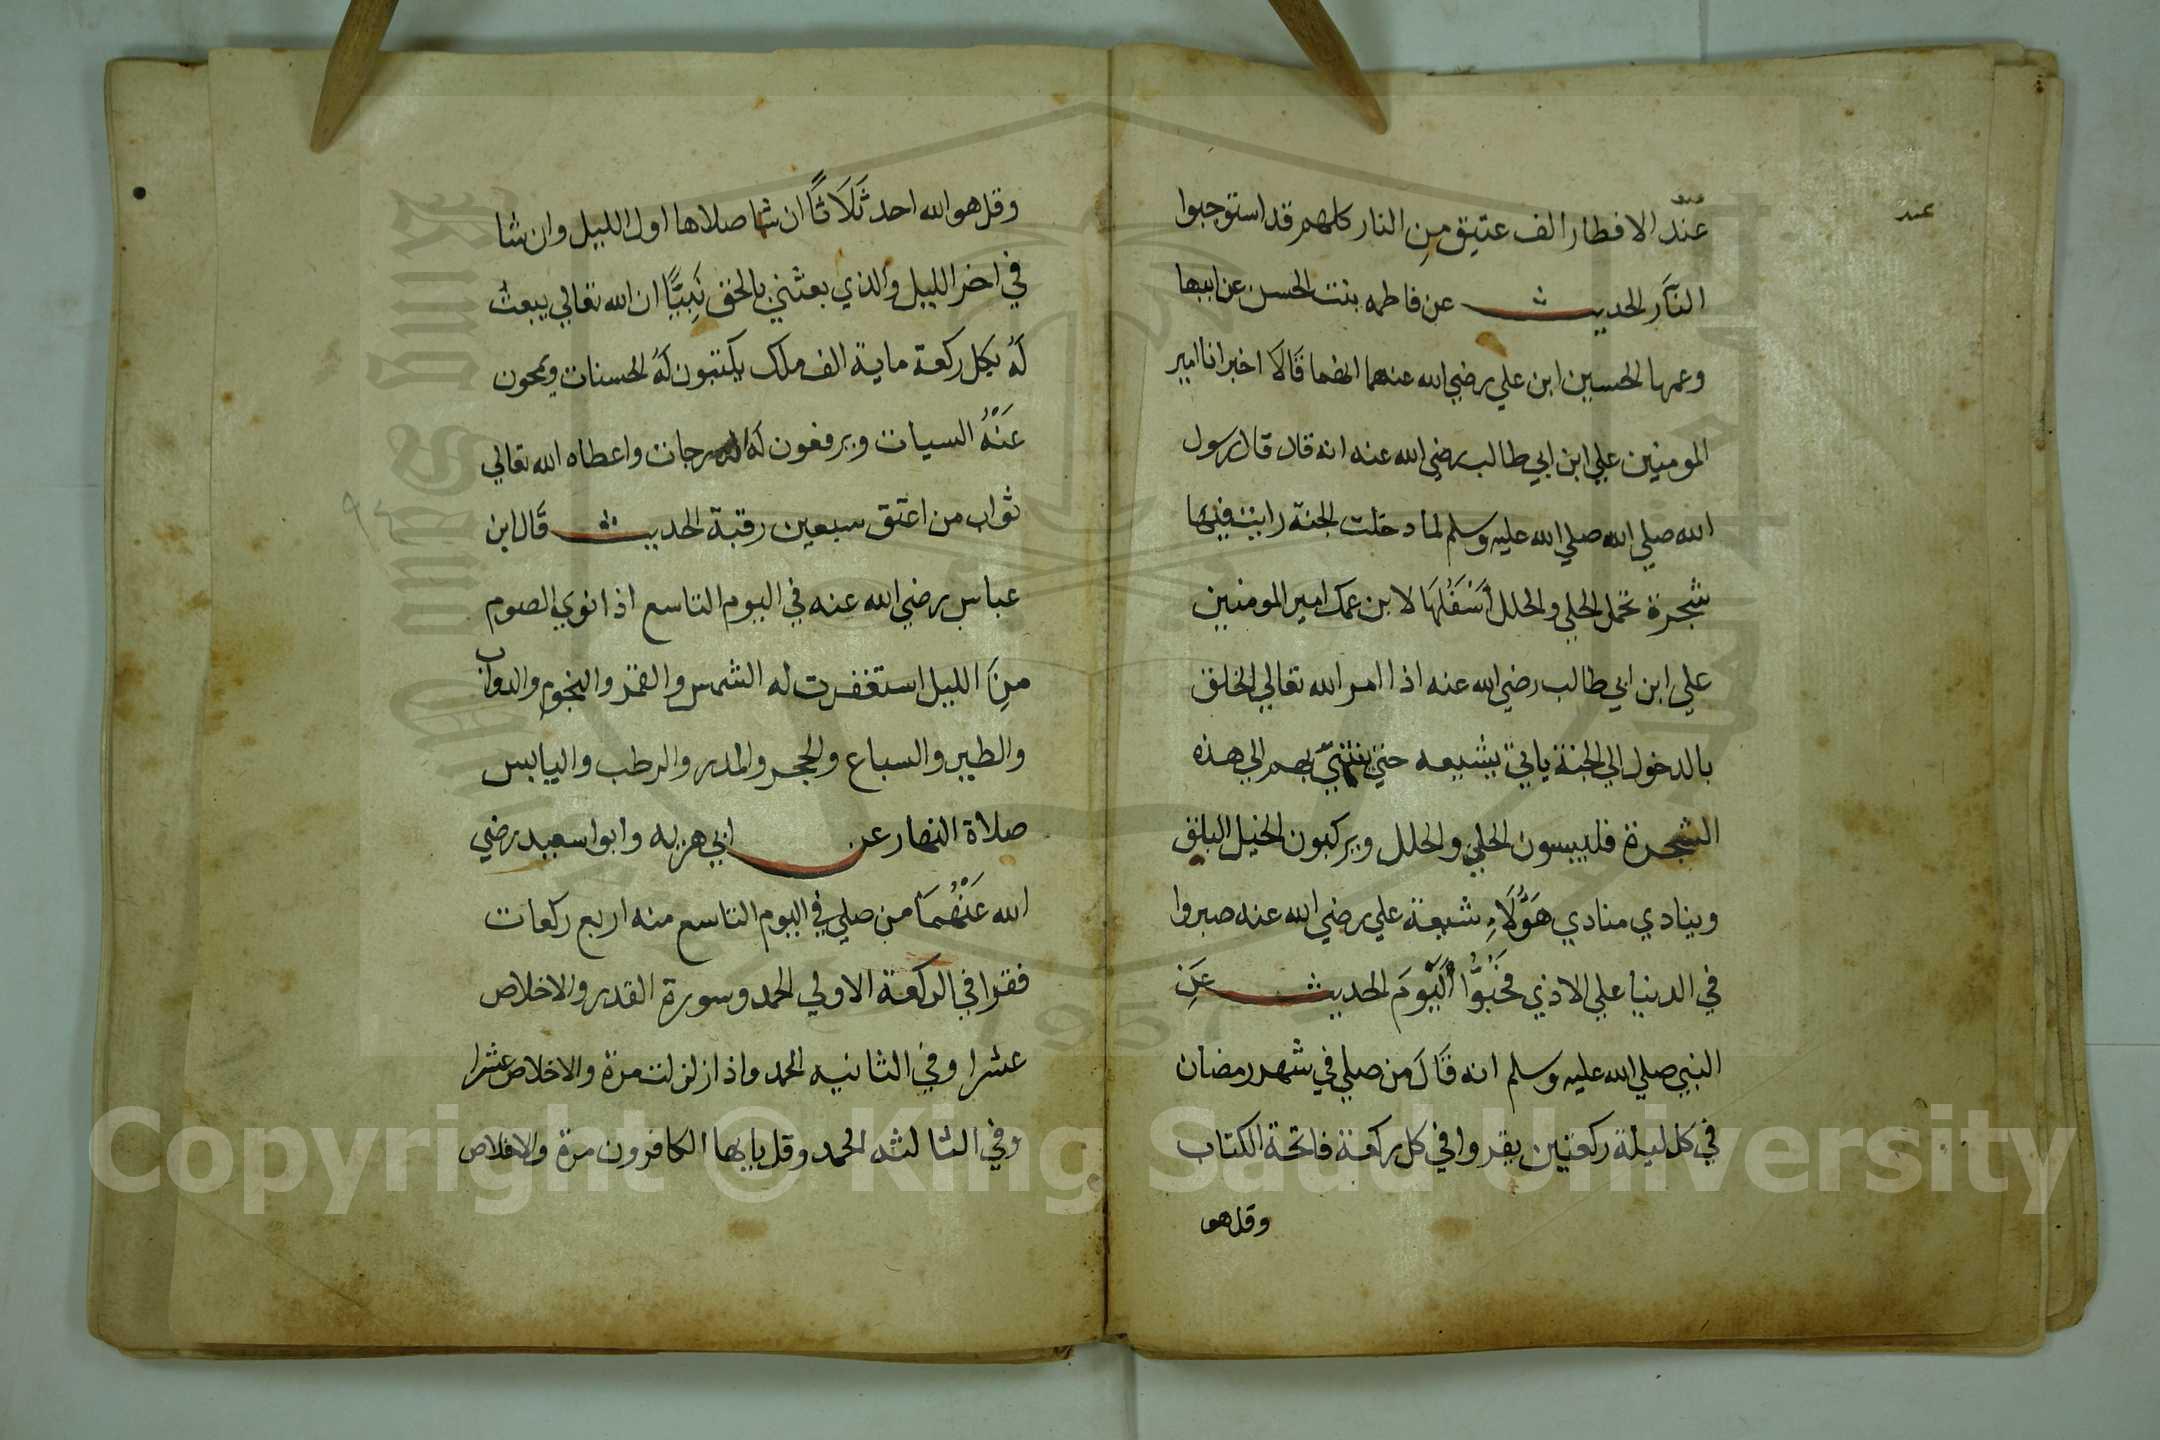 عند
عند الافطار الف عتيق من النار كلهم قد استوجبوا
النار الحديث عن فاطمه بنت الحسن عن ابيها
وعمها الحسين ابن علي رضي الله عنهما انهما قالا اخبرانا امير
المومنين علي ابن ابي طالب رضي الله عنه انه قال قال رسول
الله صلي الله صلي الله عليه وسلم لما دخلت الجنة رايت فيها
شجرة تحمل الحلي والحلل أسفلها لابن عمك امير المومنين
علي ابن ابي طالب رضي الله عنه اذا امر الله تعالي الخلق
بالدخول الي الجنة ياتي بشيعه حتي ينتهي بهم الي هذه
الشجرة فليبسون الحلي والحلل ويركبون الخيل البلق
وينادي منادي هؤلاء شيعة علي رضي الله عنه صبروا
في الدنيا علي الاذي فحبوا اليوم الحديث عن
النبي صلي الله عليه وسلم انه قال من صلي في شهر رمضان
في كل ليلة ركعتين يقروا في كل ركعة فاتحة الكتاب
وقل هو
وقل هو الله احد ثلاثا ان شا صلاها اول الليل وان شا
في اخر الليل والذي بعثني بالحق نبيا ان الله تعالي يبعث
له بكل ركعة ماية الف ملك يكتبون له الحسنات ويمحون
عنه السيات ويرفعون له الدرجات واعطاه الله تعالي
ثواب من اعتق سبعين رقبة الحديث قال ابن
عباس رضي الله عنه في اليوم التاسع اذا نوي الصوم
من الليل استغفرت له الشمس والقمر والنجوم والدواب
والطير والسباع والحجر والمدر والرطب واليابس
صلاة النهار عن ابي هريه وابوا سعيد رضي
الله عنهما من صلي في اليوم التاسع منه اربع ركعات
فقرا في الركعة الاولي الحمد وسورة القدر والاخلاص
عشرا وفي الثانيه الحمد واذا زلزلت مرة والاخلاص عشرا
وفي الثالثه الحمد وقل يايها الكافرون مرة والاخلاص
Copyright © King Saud University
1957